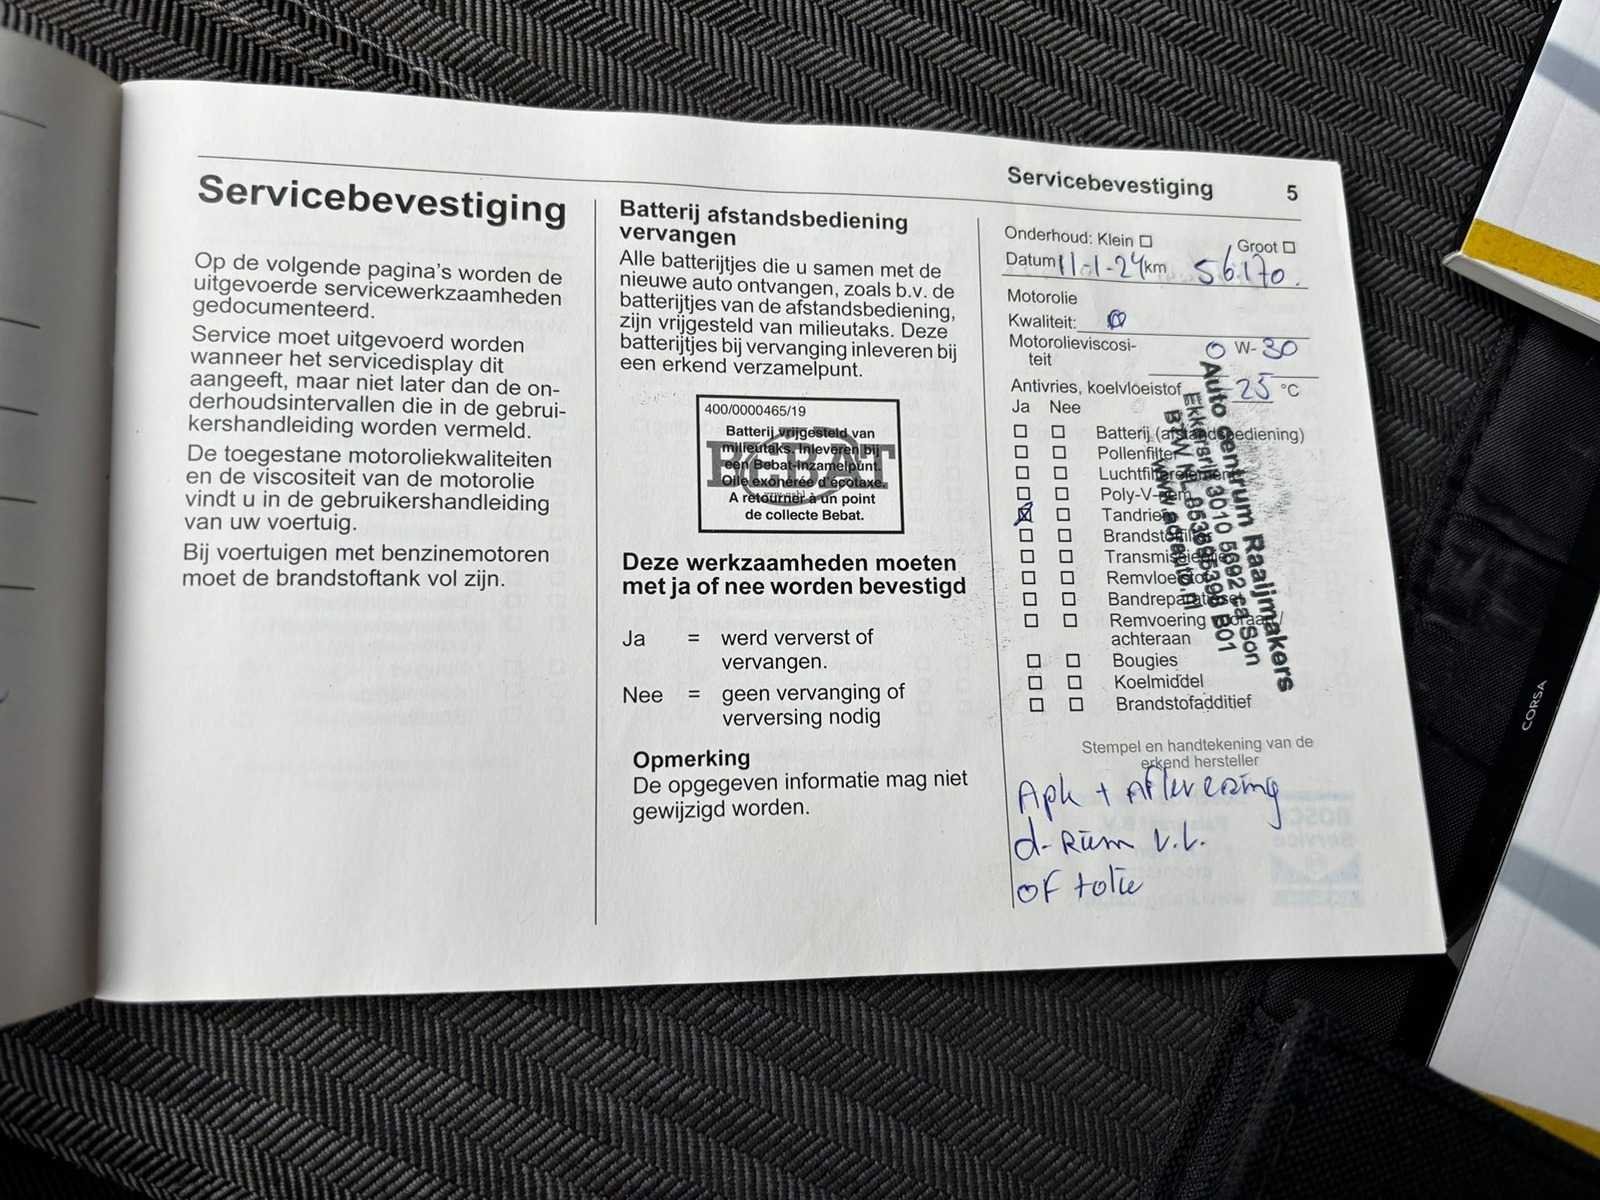 Servicebevestiging 5
Servicebevestiging
Op de volgende pagina's worden de
uitgevoerde servicewerkzaamheden
gedocumenteerd.
Service moet uitgevoerd worden
wanneer het servicedisplay dit
aangeeft, maar niet later dan de on-
derhoudsintervallen die in de gebrui-
kershandleiding worden vermeld.
De toegestane motoroliekwaliteiten
en de viscositeit van de motorolie
vindt u in de gebruikershandleiding
van uw voertuig.
Bij voertuigen met benzinemotoren
moet de brandstoftank vol zijn.
Batterij afstandsbediening
vervangen
Alle batterijtjes die u samen met de
nieuwe auto ontvangen, zoals b.v. de
batterijtjes van de afstandsbediening,
zijn vrijgesteld van milieutaks. Deze
batterijtjes bij vervanging inleveren bij
een erkend verzamelpunt.
400/0000465/19
BEBAT
Batterij vrijgesteld van
milieutaks. Inleveren bij
een Bebat-inzamelpunt.
Oile exonérée d'écotaxe.
A retourner à un point
de collecte Bebat.
Deze werkzaamheden moeten
met ja of nee worden bevestigd
Ja = werd ververst of
vervangen.
Nee = geen vervanging of
verversing nodig
Opmerking
De opgegeven informatie mag niet
gewijzigd worden.
Onderhoud: Klein Groot
Datum 11-1-24 km 56.170.
Motorolie
Kwaliteit:
Motorolieviscosi-
teit 0 W-30
Antivries, koelvloeistof 25 °C
Ja Nee
Batterij (afstandsbediening)
Pollenfilter
Luchtfilterelement
Poly-V-riem
Tandriem
Brandstoffilter
Transmissieolie
Remvloeistof
Bandreparatieset
Remvoering vooraan/
achteraan
Bougies
Koelmiddel
Brandstofadditief
Auto Centrum Raaijmakers
Ekkersrijt 3010 5692 CA Son
Stempel en handtekening van de
erkend hersteller
Apk + aflevering
d-Riem v.v.
of tolie
CORSA